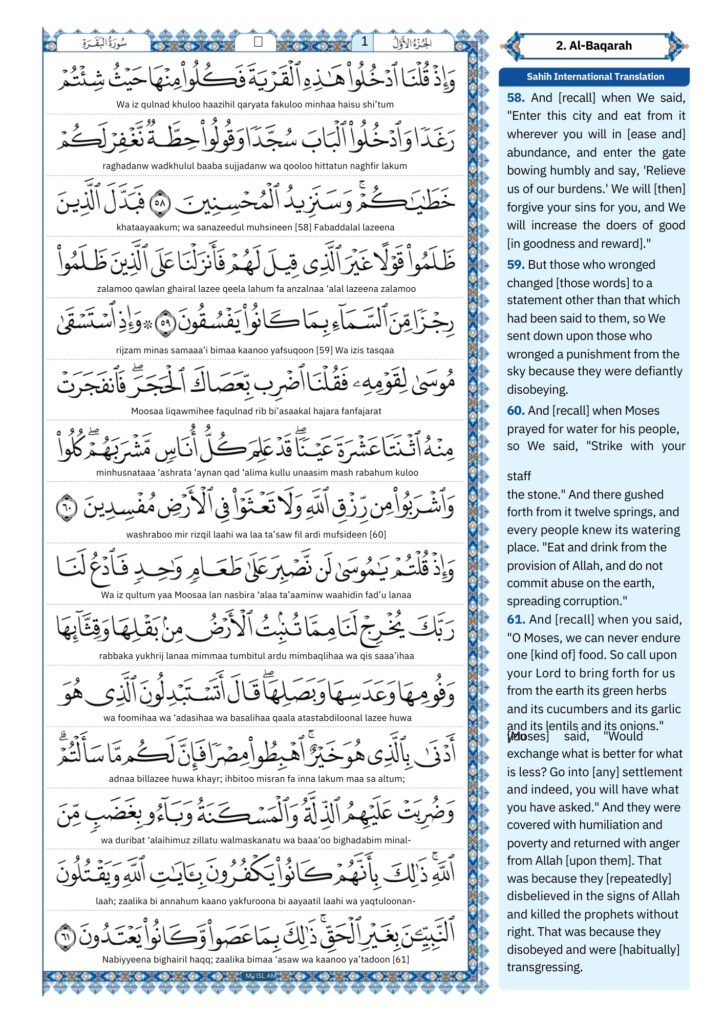 سُورَةُ البَقَرَةِ
1
الجُزْءُ الأَوَّلُ
وَإِذْ قُلْنَا ٱدْخُلُوا۟ هَـٰذِهِ ٱلْقَرْيَةَ فَكُلُوا۟ مِنْهَا حَيْثُ شِئْتُمْ
Wa iz qulnad khuloo haazihil qaryata fakuloo minhaa haisu shi'tum
رَغَدًا وَٱدْخُلُوا۟ ٱلْبَابَ سُجَّدًا وَقُولُوا۟ حِطَّةٌ نَّغْفِرْ لَكُمْ
raghadanw wadkhulul baaba sujjadanw wa qooloo hittatun naghfir lakum
خَطَـٰيَـٰكُمْ ۚ وَسَنَزِيدُ ٱلْمُحْسِنِينَ ٥٨ فَبَدَّلَ ٱلَّذِينَ
khataayaakum; wa sanazeedul muhsineen [58] Fabaddalal lazeena
ظَلَمُوا۟ قَوْلًا غَيْرَ ٱلَّذِى قِيلَ لَهُمْ فَأَنزَلْنَا عَلَى ٱلَّذِينَ ظَلَمُوا۟
zalamoo qawlan ghairal lazee qeela lahum fa anzalnaa 'alal lazeena zalamoo
رِجْزًا مِّنَ ٱلسَّمَآءِ بِمَا كَانُوا۟ يَفْسُقُونَ ٥٩ ۞ وَإِذِ ٱسْتَسْقَىٰ
rijzam minas samaaa'i bimaa kaanoo yafsuqoon [59] Wa izis tasqaa
مُوسَىٰ لِقَوْمِهِۦ فَقُلْنَا ٱضْرِب بِّعَصَاكَ ٱلْحَجَرَ ۖ فَٱنفَجَرَتْ
Moosaa liqawmihee faqulnad rib bi'asaakal hajara fanfajarat
مِنْهُ ٱثْنَتَا عَشْرَةَ عَيْنًا ۖ قَدْ عَلِمَ كُلُّ أُنَاسٍ مَّشْرَبَهُمْ ۖ كُلُوا۟
minhusnataaa 'ashrata 'aynan qad 'alima kullu unaasim mash rabahum kuloo
وَٱشْرَبُوا۟ مِن رِّزْقِ ٱللَّهِ وَلَا تَعْثَوْا۟ فِى ٱلْأَرْضِ مُفْسِدِينَ ٦٠
washraboo mir rizqil laahi wa laa ta'saw fil ardi mufsideen [60]
وَإِذْ قُلْتُمْ يَـٰمُوسَىٰ لَن نَّصْبِرَ عَلَىٰ طَعَامٍ وَٰحِدٍ فَٱدْعُ لَنَا
Wa iz qultum yaa Moosaa lan nasbira 'alaa ta'aaminw waahidin fad'u lanaa
رَبَّكَ يُخْرِجْ لَنَا مِمَّا تُنۢبِتُ ٱلْأَرْضُ مِنۢ بَقْلِهَا وَقِثَّآئِهَا
rabbaka yukhrij lanaa mimmaa tumbitul ardu mimbaqlihaa wa qis saaa'ihaa
وَفُومِهَا وَعَدَسِهَا وَبَصَلِهَا ۖ قَالَ أَتَسْتَبْدِلُونَ ٱلَّذِى هُوَ
wa foomihaa wa 'adasihaa wa basalihaa qaala atastabdiloonal lazee huwa
أَدْنَىٰ بِٱلَّذِى هُوَ خَيْرٌ ۚ ٱهْبِطُوا۟ مِصْرًا فَإِنَّ لَكُم مَّا سَأَلْتُمْ ۗ
adnaa billazee huwa khayr; ihbitoo misran fa inna lakum maa sa altum;
وَضُرِبَتْ عَلَيْهِمُ ٱلذِّلَّةُ وَٱلْمَسْكَنَةُ وَبَآءُو بِغَضَبٍ مِّنَ
wa duribat 'alaihimuz zillatu walmaskanatu wa baaa'oo bighadabim minal-
ٱللَّهِ ۗ ذَٰلِكَ بِأَنَّهُمْ كَانُوا۟ يَكْفُرُونَ بِـَٔايَـٰتِ ٱللَّهِ وَيَقْتُلُونَ
laah; zaalika bi annahum kaano yakfuroona bi aayaatil laahi wa yaqtuloonan-
ٱلنَّبِيِّـۧنَ بِغَيْرِ ٱلْحَقِّ ۗ ذَٰلِكَ بِمَا عَصَوا۟ وَّكَانُوا۟ يَعْتَدُونَ ٦١
Nabiyyeena bighairil haqq; zaalika bimaa 'asaw wa kaanoo ya'tadoon [61]
My ISLAM
2. Al-Baqarah
Sahih International Translation
58. And [recall] when We said,
"Enter this city and eat from it
wherever you will in [ease and]
abundance, and enter the gate
bowing humbly and say, 'Relieve
us of our burdens.' We will [then]
forgive your sins for you, and We
will increase the doers of good
[in goodness and reward]."
59. But those who wronged
changed [those words] to a
statement other than that which
had been said to them, so We
sent down upon those who
wronged a punishment from the
sky because they were defiantly
disobeying.
60. And [recall] when Moses
prayed for water for his people,
so We said, "Strike with your
staff
the stone." And there gushed
forth from it twelve springs, and
every people knew its watering
place. "Eat and drink from the
provision of Allah, and do not
commit abuse on the earth,
spreading corruption."
61. And [recall] when you said,
"O Moses, we can never endure
one [kind of] food. So call upon
your Lord to bring forth for us
from the earth its green herbs
and its cucumbers and its garlic
and its lentils and its onions."
[Moses] said, "Would
exchange what is better for what
is less? Go into [any] settlement
and indeed, you will have what
you have asked." And they were
covered with humiliation and
poverty and returned with anger
from Allah [upon them]. That
was because they [repeatedly]
disbelieved in the signs of Allah
and killed the prophets without
right. That was because they
disobeyed and were [habitually]
transgressing.